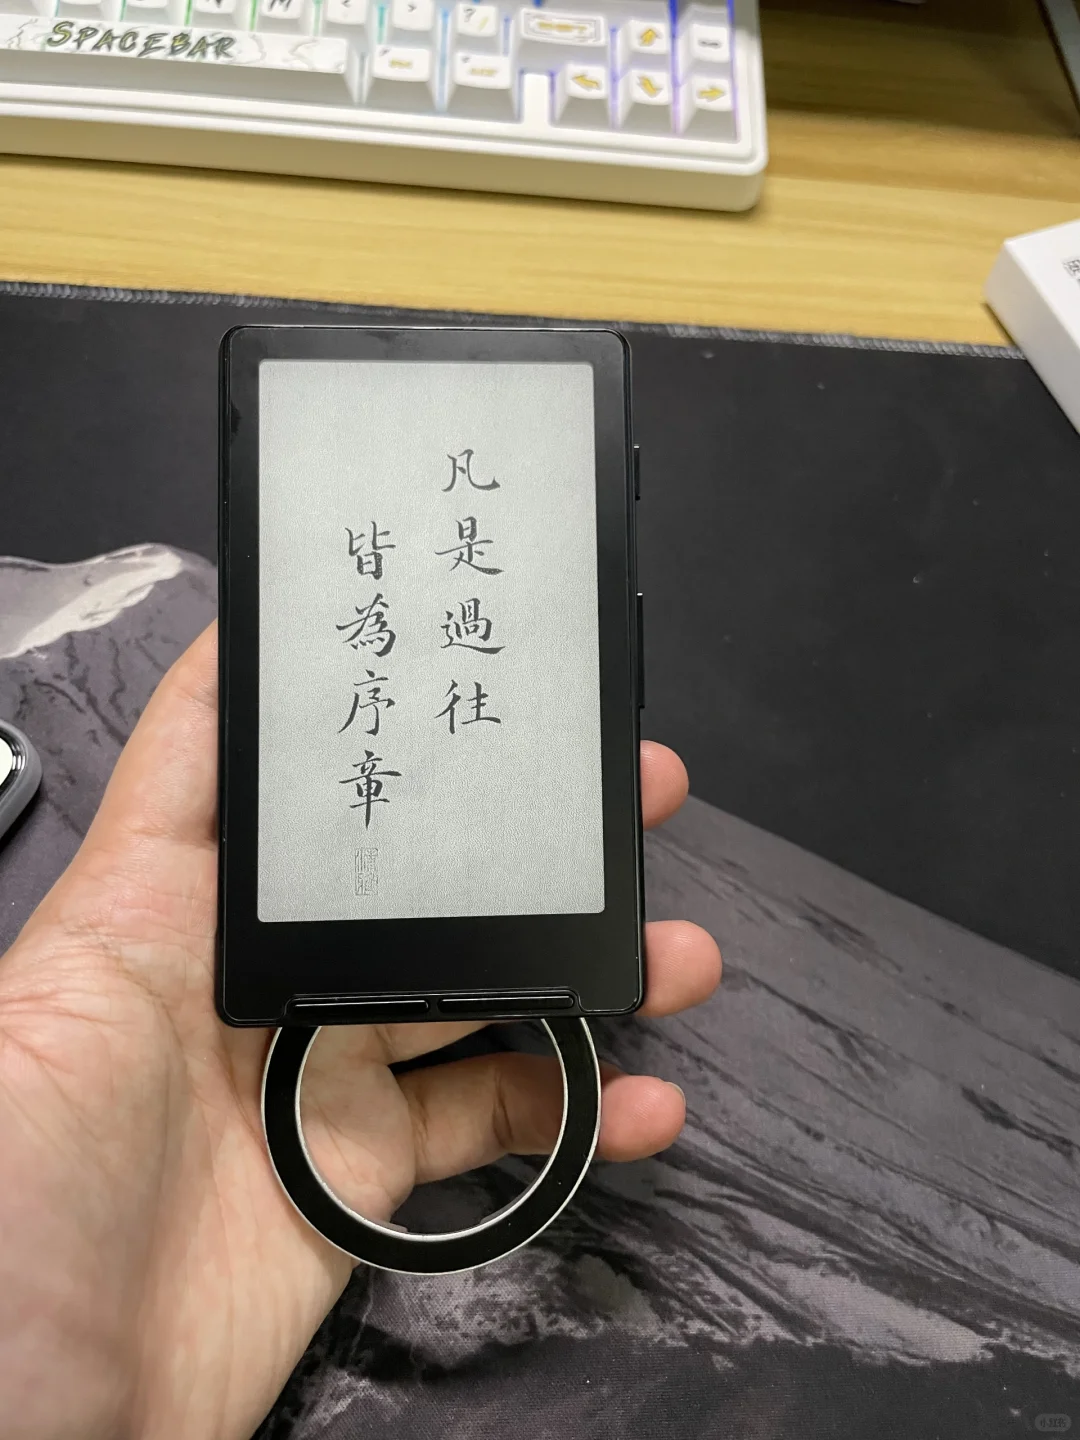 SPACEBAR
N
M
<
>
?
/
凡是過往
皆為序章
小红书